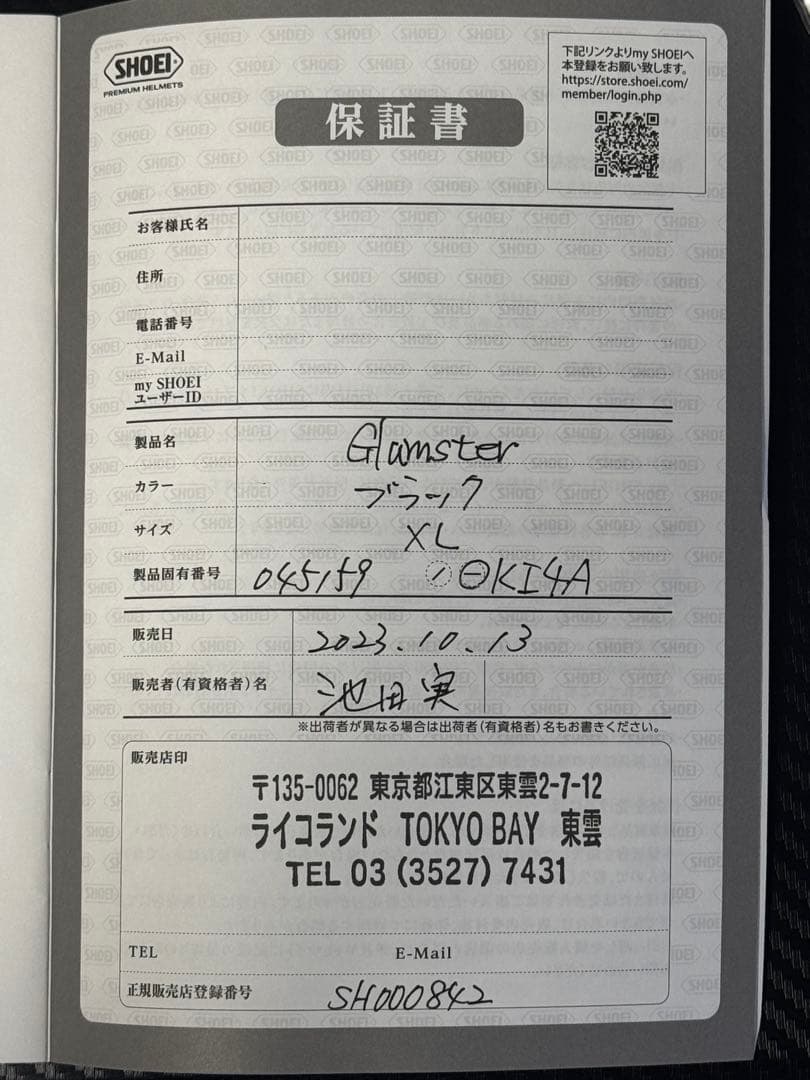 SHOEI
PREMIUM HELMETS
下記リンクよりmy SHOEIへ
本登録をお願い致します。
https://store.shoei.com/
member/login.php
保証書
お客様氏名
住所
電話番号
E-Mail
my SHOEI
ユーザーID
製品名 Glamster
カラー ブラック
サイズ XL
製品固有番号 045159 KI4A
販売日 2023.10.13
販売者(有資格者)名 池田実
※出荷者が異なる場合は出荷者(有資格者)名もお書きください。
販売店印
〒135-0062 東京都江東区東雲2-7-12
ライコランド TOKYO BAY 東雲
TEL 03 (3527) 7431
TEL E-Mail
正規販売店登録番号 SH000842